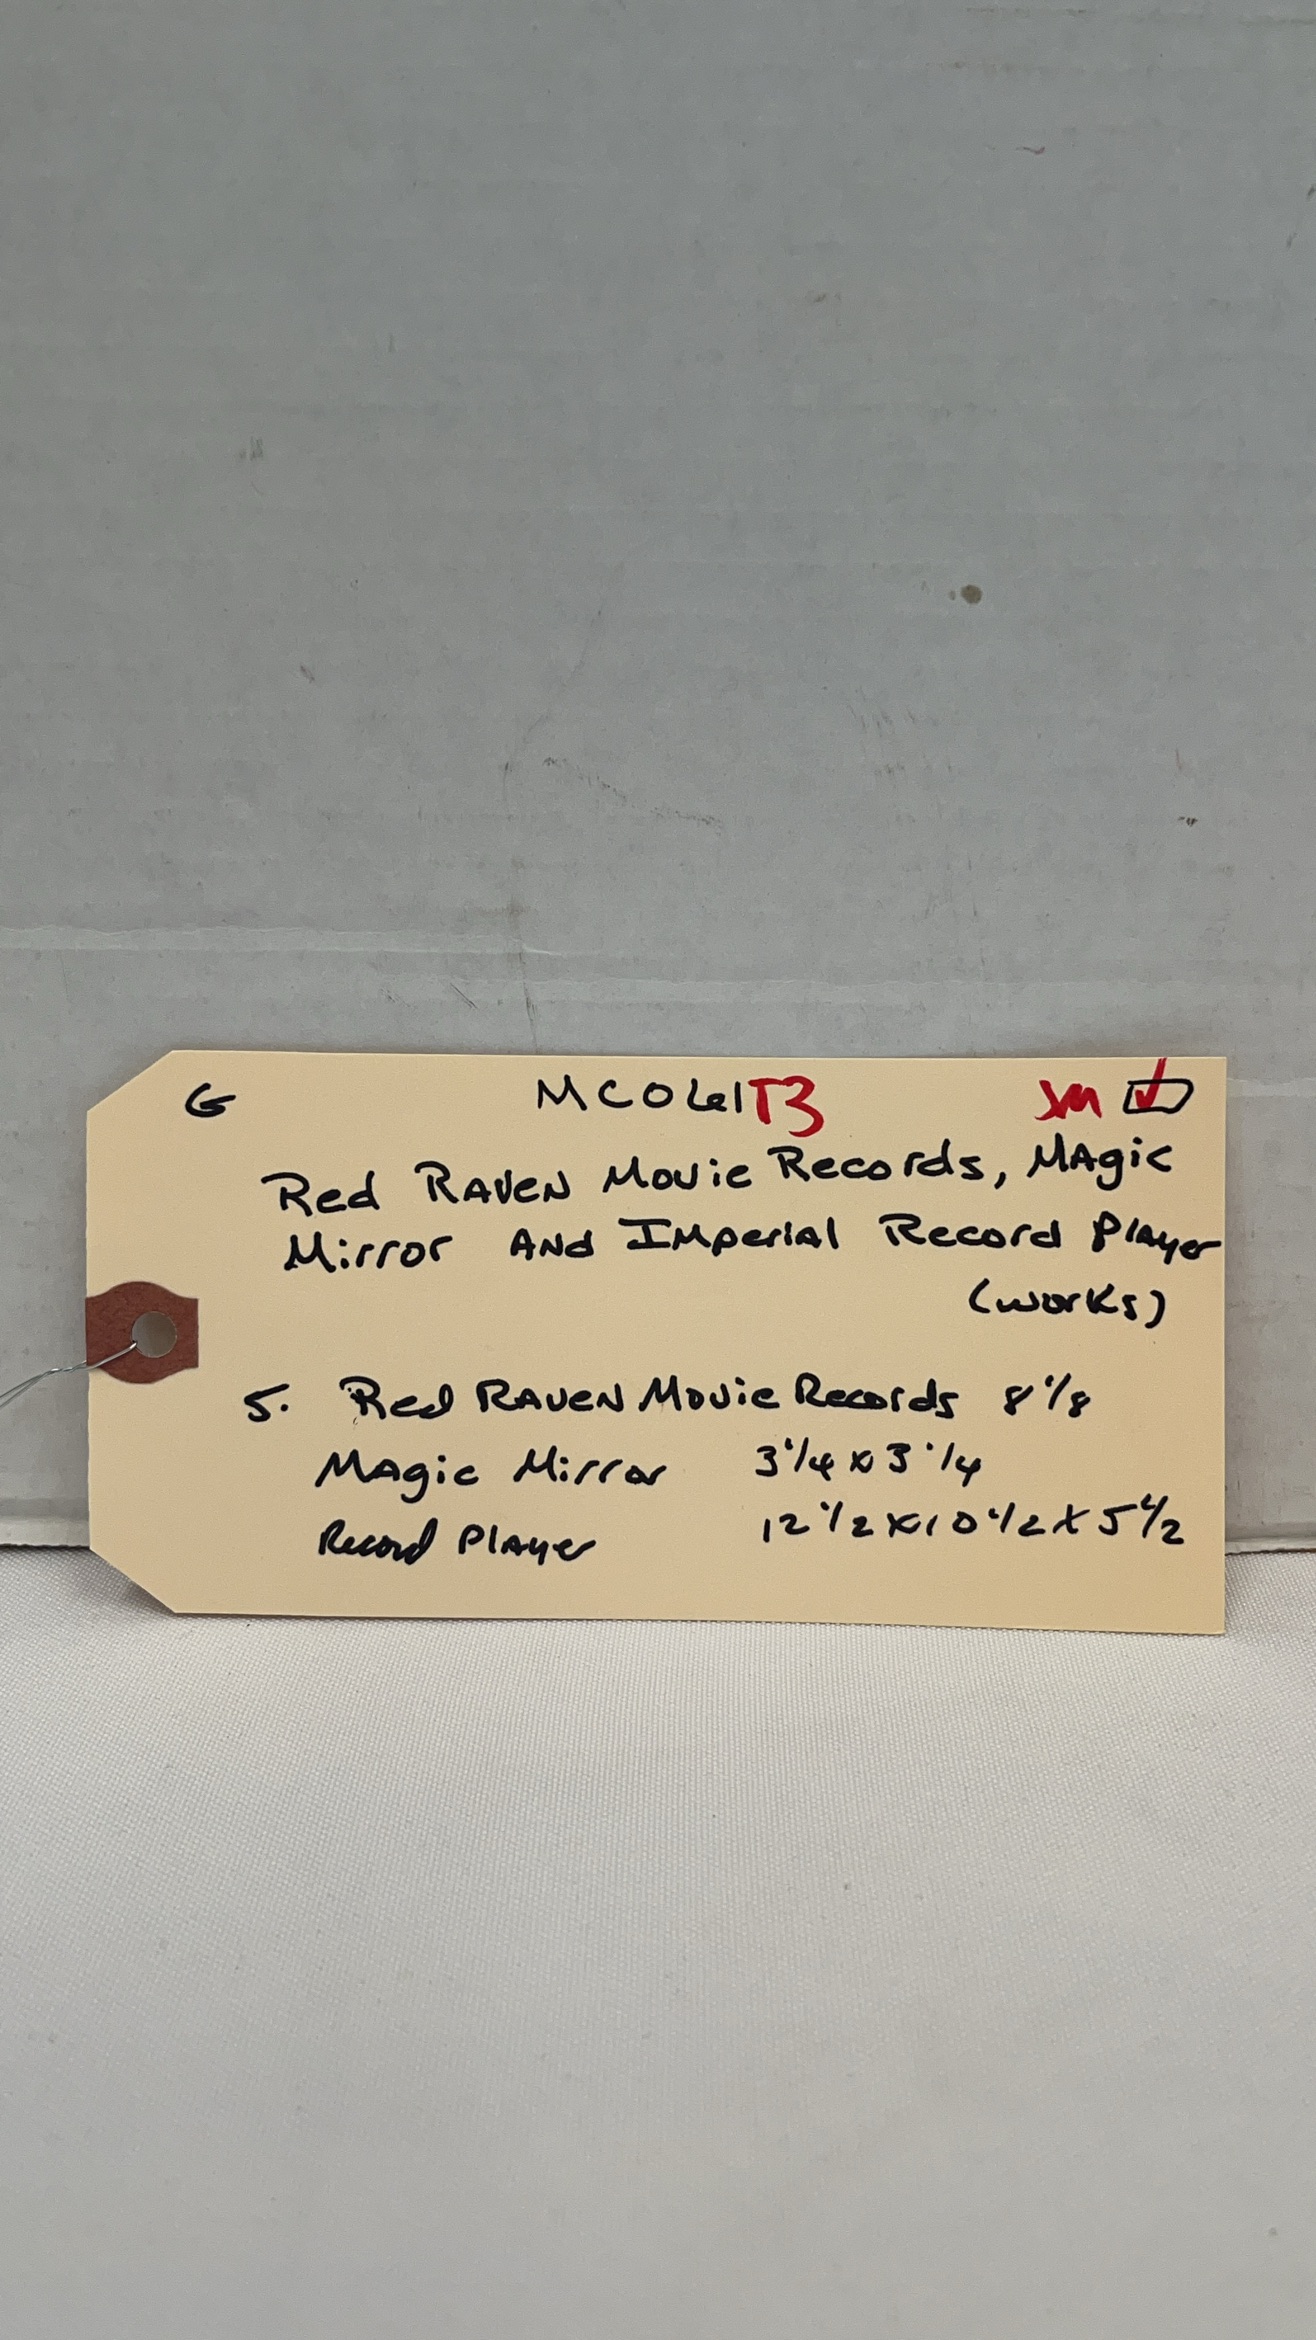 G
Red Raven Movie Records, Magic
Mirror And Imperial Record Player
(works)
5. Red Raven Movie Records 8 1/8
Magic Mirror 3 1/4 x 3 1/4
Record Player 12 1/2 x 10 1/2 x 5 1/2